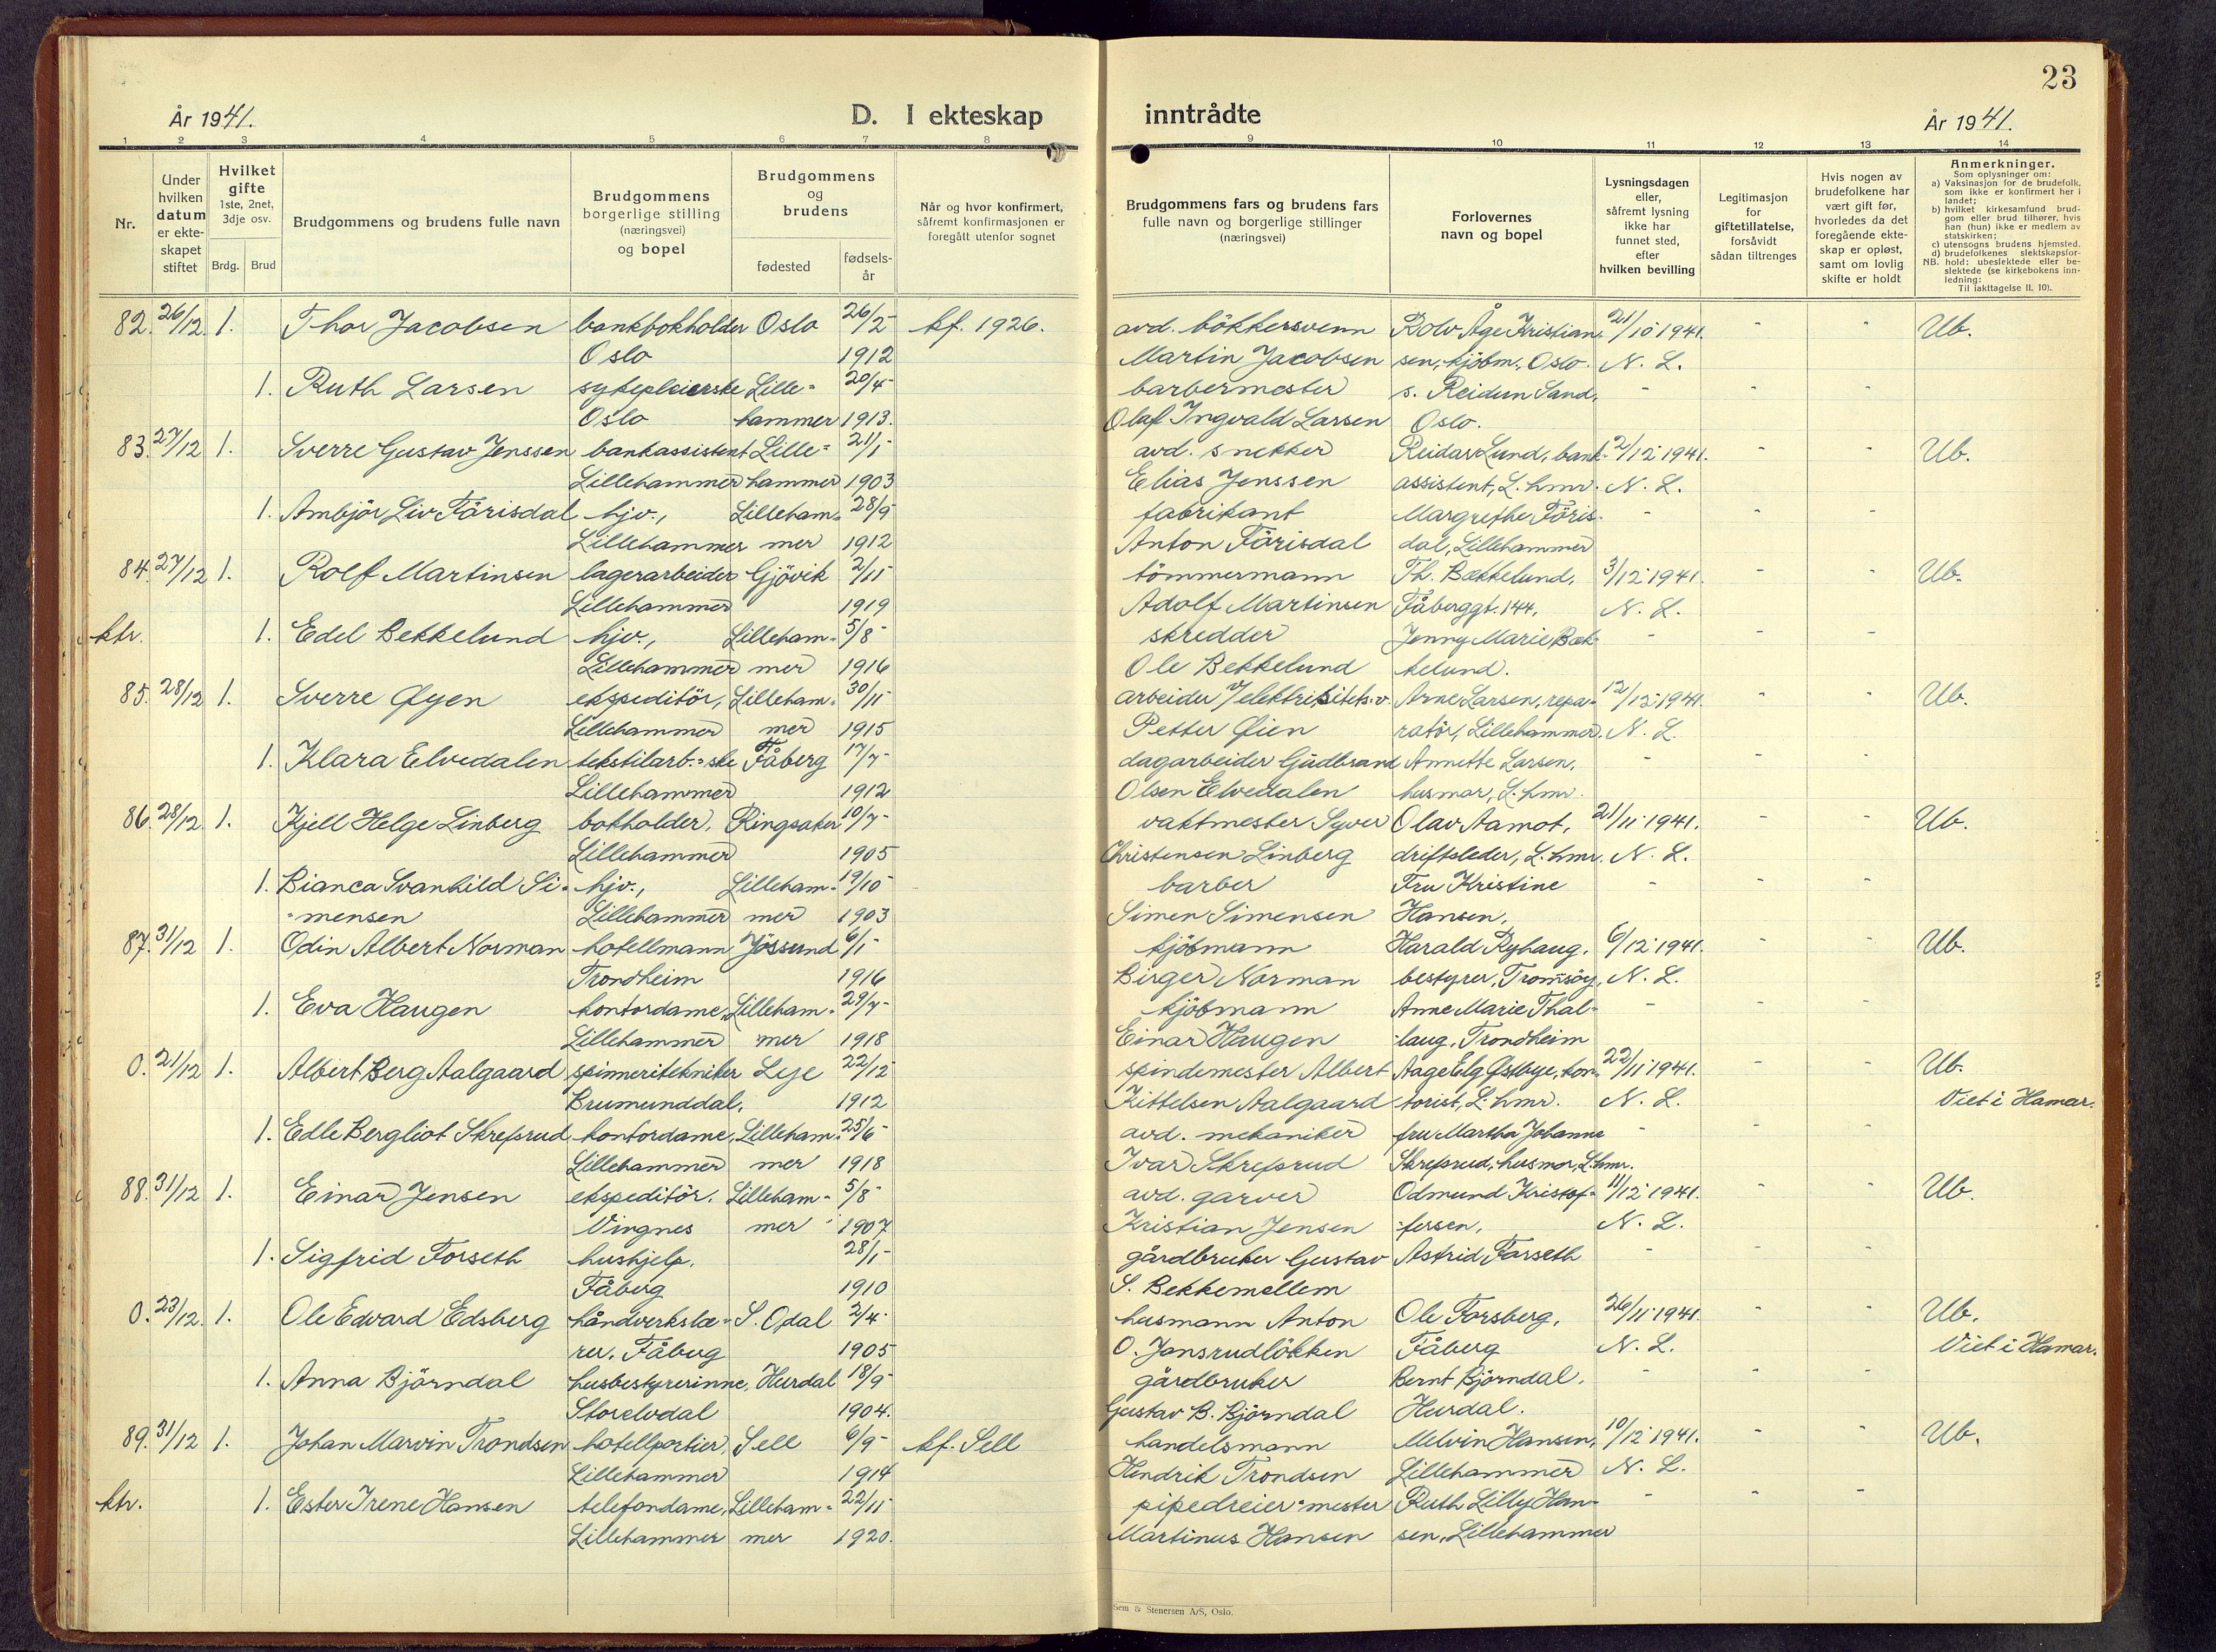 23
År 1941.
D. I ekteskap inntrådte
År 1941.
1 2 3 4 5 6 7 8 9 10 11 12 13 14
Nr.
Under hvilken datum er ekteskapet stiftet
Hvilket gifte 1ste, 2net, 3dje osv.
Brdg. Brud
Brudgommens og brudens fulle navn
Brudgommens borgerlige stilling (næringsvei) og bopel
Brudgommens og brudens
fødested
fødsels-år
Når og hvor konfirmert, såfremt konfirmasjonen er foregått utenfor sognet
Brudgommens fars og brudens fars fulle navn og borgerlige stillinger (næringsvei)
Forlovernes navn og bopel
Lysningsdagen eller, såfremt lysning ikke har funnet sted, efter hvilken bevilling
Legitimasjon for giftetillatelse, forsåvidt sådan tiltrenges
Hvis nogen av brudefolkene har vært gift før, hvorledes da det foregående ekteskap er opløst, samt om lovlig skifte er holdt
Anmerkninger.
Som oplysninger om:
a) Vaksinasjon for de brudefolk, som ikke er konfirmert her i landet;
b) hvilket kirkesamfund brudgom eller brud tilhører, hvis han (hun) ikke er medlem av statskirken;
c) utensogns brudens hjemsted.
d) brudefolkenes slektskapsforhold: ubeslektede eller beslektede (se kirkebokens innledning:
NB. Til iakttagelse II. 10).
82. 26/12. 1. Thor Jacobsen bankbokholder Oslo 26/2 kf. 1926. avd. bökkersvenn Rolv Åge Kristian- 21/10 1941. - - Ub.
Oslo 1912 Martin Jacobsen sen, kjöbm., Oslo. N. L.
1. Ruth Larsen sykepleierske Lille- 20/4 barbermester s. Reidun Sand, - - -
Oslo hammer 1913. Olaf Ingvald Larsen Oslo.
83. 27/12 1. Sverre Gustav Jenssen bankassistent Lille- 21/1 avd. snekker Reidar Lund, bank- 2/12 1941. - - Ub.
Lillehammer hammer 1903 Elias Jenssen assistent, L.hmr. N. L.
1. Ambjör Liv Fårisdal hjv., Lilleham- 28/9 fabrikant Margrethe Föris- - - -
Lillehammer mer 1912 Anton Fårisdal dal, Lillehammer
84. 27/12 1. Rolf Martinsen lagerarbeider Gjövik 2/11 tömmermann Th. Bækkelund, 3/12 1941. - - Ub.
Lillehammer 1919 Adolf Martinsen Fåberggt. 144, N. L.
ktr. 1. Edel Bekkelund hjv., Lilleham- 5/8 skredder Jenny Marie Bæk- - - -
Lillehammer mer 1916 Ole Bekkelund kelund.
85. 28/12 1. Sverre Øyen ekspeditör, Lilleham- 30/11 arbeider v/elektrisitets.v. Arne Larsen, repa- 12/12 1941. - - Ub.
Lillehammer mer 1915 Petter Øien ratör, Lillehammer. N. L.
1. Klara Elvedalen tekstilarb.-ske Fåberg 17/7 dagarbeider Gudbrand Annette Larsen, - - -
Lillehammer 1912 Olsen Elvedalen husmor, L.hmr.
86. 28/12 1. Kjell Helge Linberg bokholder, Ringsaker 10/7 vaktmester Syver Olav Aamot, 21/11 1941. - - Ub.
Lillehammer 1905 Christensen Linberg driftsleder, L.hmr. N. L.
1. Bianca Svanhild Si- hjv., Lilleham- 19/10 barber Fru Kristine - - -
-mensen Lillehammer mer 1903 Simen Simensen Hansen,
87. 31/12 1. Odin Albert Norman hotellmann Jössund 6/1 kjöbmann Harald Ryhaug, 6/12 1941. - - Ub.
Trondheim 1916 Birger Norman bestyrer, Tromsöy, N. L.
1. Eva Haugen kontordame, Lilleham- 29/7 kjöbmann Anne Marie Thal- - - -
Lillehammer mer 1918 Einar Haugen laug, Trondheim
0. 21/12 1. Albert Berg Aalgaard spinneritekniker Lye 22/12 spindemester Albert Aage Elg Østbye, kon- 22/11 1941. - - Ub.
Brumunddal, 1912 Kittelsen Aalgaard torist, L.hmr. N. L. Viet i Hamar.
1. Edle Bergliot Skrefsrud kontordame, Lilleham- 25/6 avd. mekaniker fru Martha Johanne - - -
Lillehammer mer 1918 Ivar Skrefsrud Skrefsrud, husmor, L.hmr.
88. 31/12 1. Einar Jensen ekspeditör. Lilleham- 5/8 avd. garver Odmund Kristof- 11/12 1941. - - Ub.
Vingnes mer 1907 Kristian Jensen fersen, N. L.
1. Sigfrid Forseth hushjelp, 28/1 gårdbruker Gustav Astrid Forseth - - -
Fåberg 1910 S. Bekkemellem
0. 23/12. 1. Ole Edvard Edsberg håndverkslæ- S. Odal 2/4 husmann Anton Ole Forsberg, 26/11 1941. - - Ub.
rer. Fåberg 1905 O. Jansrudlökken Fåberg N. L. Viet i Hamar.
1. Anna Björndal husbestyrerinne, Hurdal 18/9 gårdbruker Bernt Björndal, - - -
Storelvdal 1904. Gustav B. Björndal Hurdal.
89. 31/12 1. Johan Marvin Trondsen hotellportier, Sell 6/9 kf. Sell handelsmann Melvin Hansen, 10/12 1941. - - Ub.
Lillehammer 1914 Hendrik Trondsen Lillehammer N. L.
ktr. 1. Ester Irene Hansen telefondame, Lilleham- 22/11 pipedreier-mester Ruth Lilly Han- - - -
Lillehammer mer 1920. Martinus Hansen sen, Lillehammer
Sem & Stenersen A/S, Oslo.